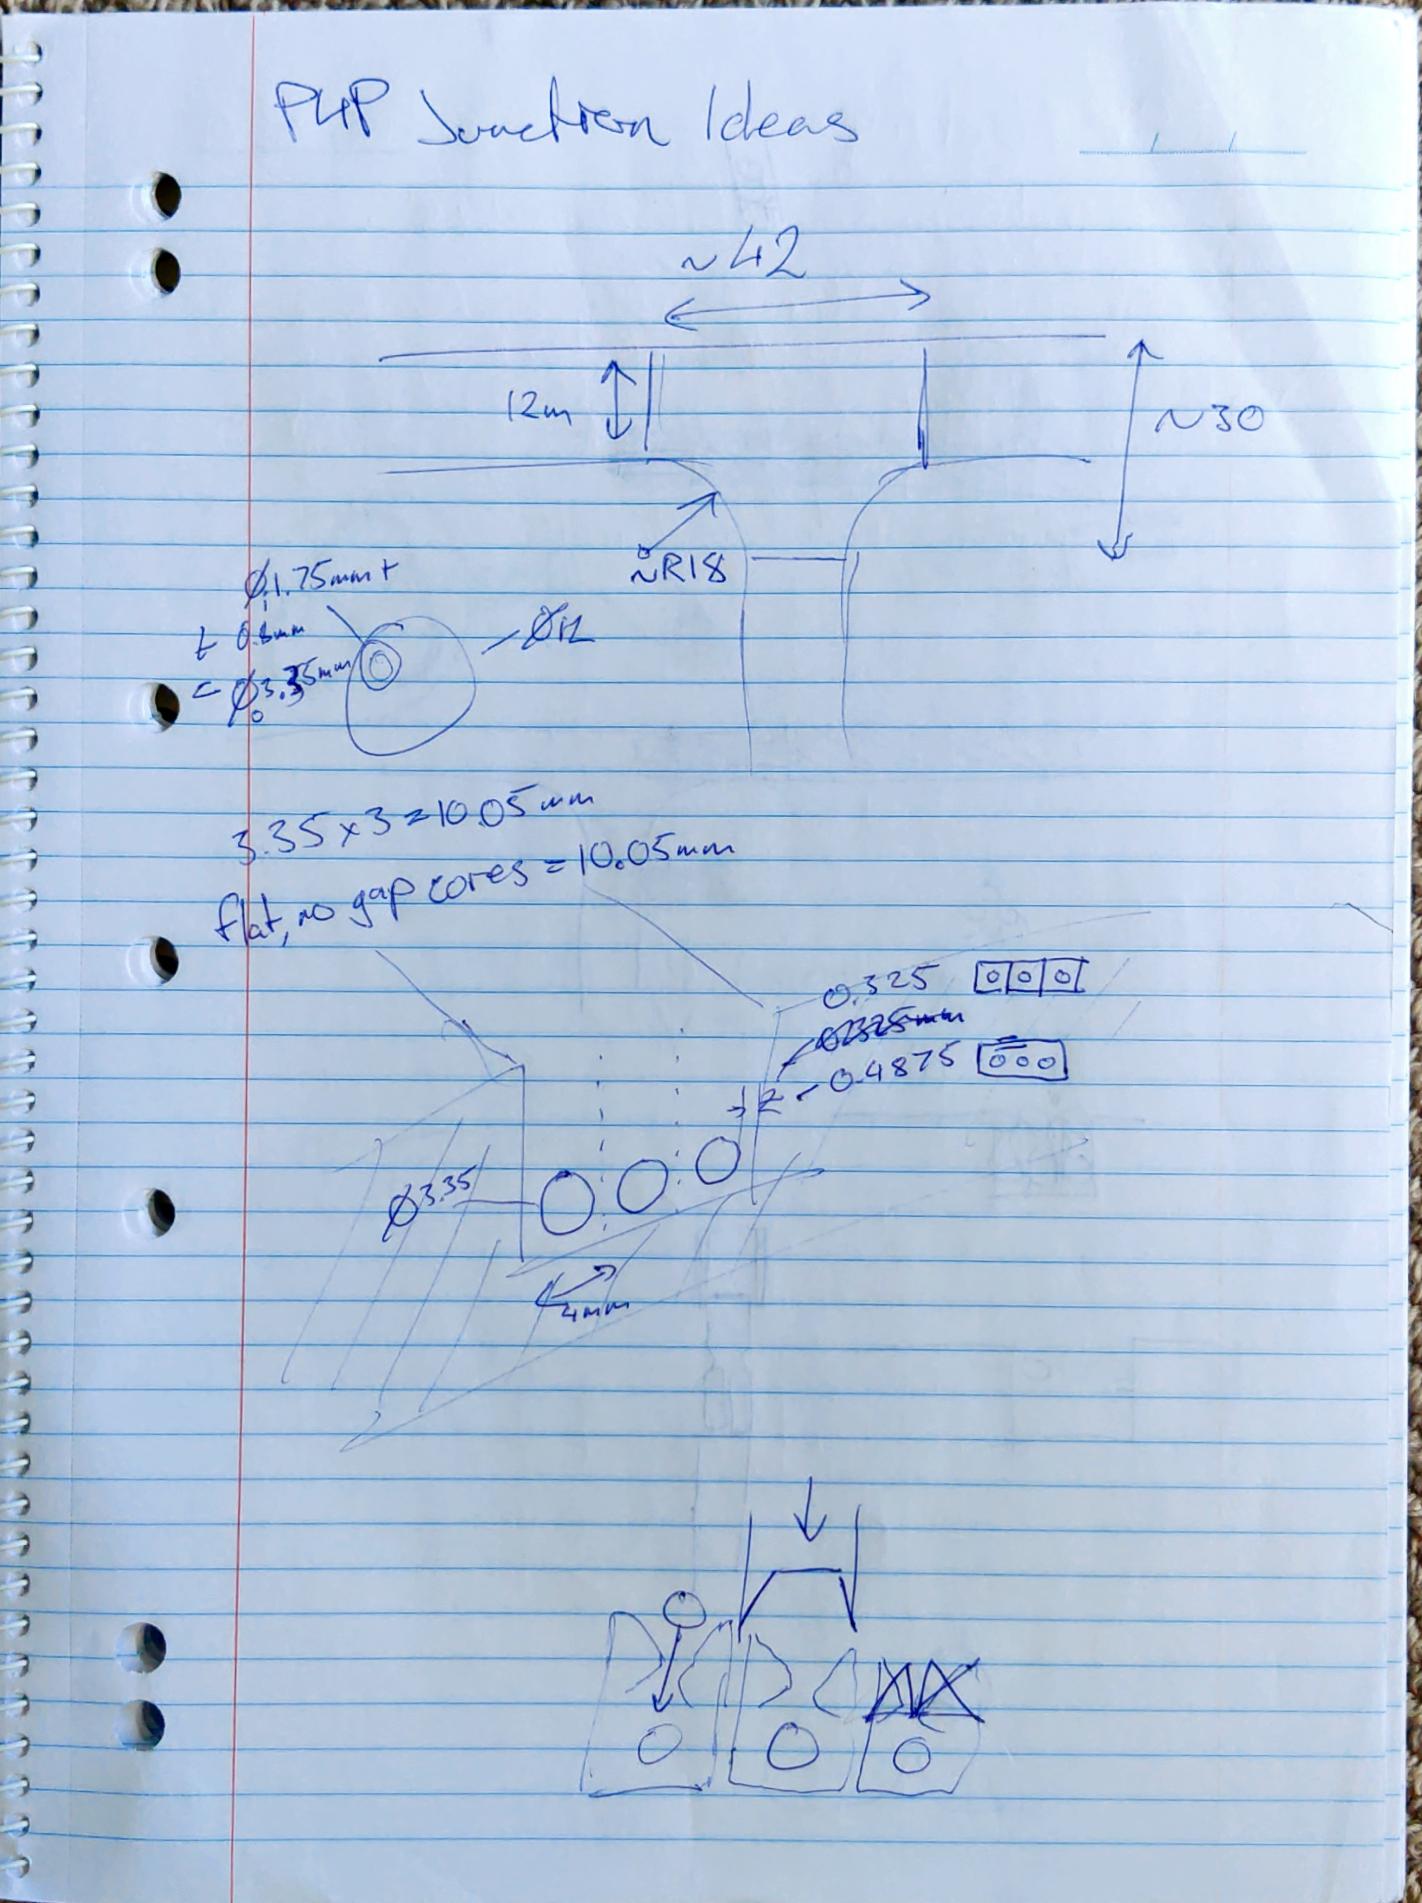 P4P Junction Ideas
~42
12m
~30
~R18
Ø1.75mm +
t 0.8mm
= Ø3.35mm
Ø12
3.35 x 3 = 10.05mm
flat, no gap cores = 10.05mm
0.325
0.325mm
0.4875
Ø3.35
4mm